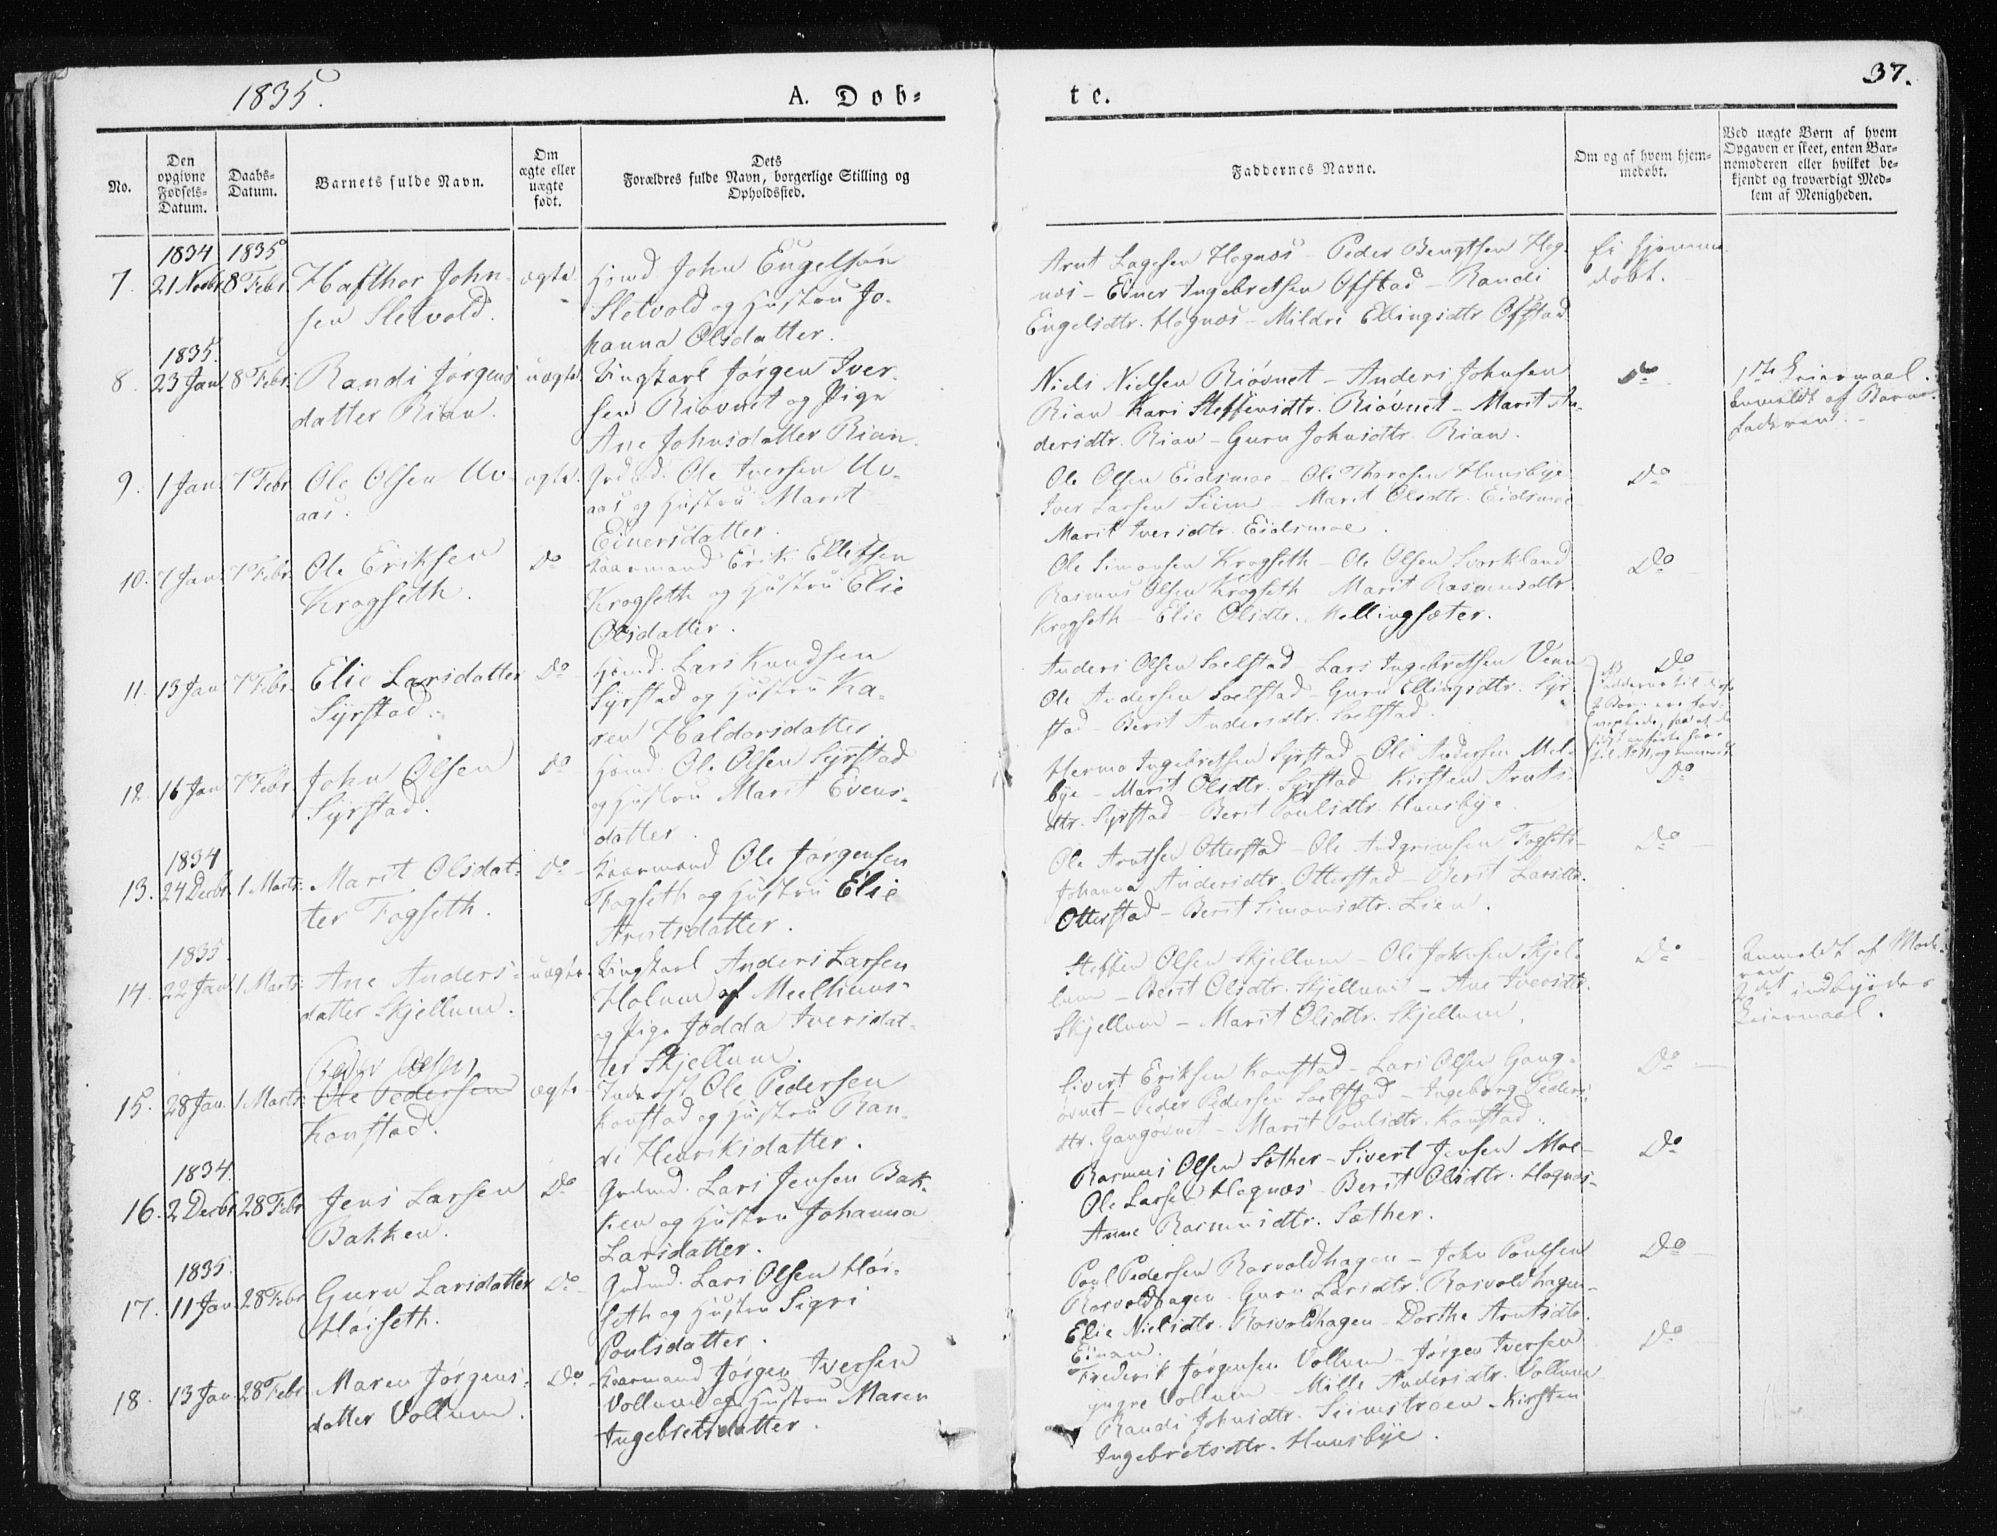 1835.
A. Døb=
te.
37.
No.
Den opgivne Fødsels-Datum.
Daabs-Datum.
Barnets fulde Navn.
Om ægte eller uægte født.
Dets Forældres fulde Navn, borgerlige Stilling og Opholdssted.
Faddernes Navne.
Om og af hvem hjem-medøbt.
Ved uægte Børn af hvem Opgaven er skeet, enten Bar-nemoderen eller hvilket be-kjendt og troværdigt Med-lem af Menigheden.
1834 1835
7. 21 Novbr 8 Febr. Hafthor John-
sen Sletvold.
ægte.
John Engelsøn
Sletvold og Hustru Jo-
hanna Olsdatter.
Arnt Lagesen Hognæs - Peder Bengtsen Hog-
næs - Einer Ingebretsen Ofstad - Randi
Engelsdtr. Hognæs - Mildri Ellingsdtr Ofstad
Ei hjemme
døbt.
1835.
8. 23 Jan. 8 Febr. Randi Jørgens
datter Rian.
uægte.
Ungkarl Jørgen Iver-
sen Riøvnet og Pige
Ane Johnsdatter Rian.
Niels Nielsen Riøvnet - Anders Johnsen
Rian - Kari Steffensdtr. Riøvnet - Marit An-
dersdtr. Rian - Guru Johnsdtr. Rian.
Do
1ste Leiermaal.
anmeldt af Barne-
faderen.
9. 1 Jan 7 Febr. Ole Olsen Uv-
aas.
ægte.
Grdmd. Ole Iversen Uv-
aas og Hustru Marit
Einersdatter.
Ole Olsen Eidsmoe - Ole Thoresen Hunsbye
Iver Larsen Siim - Marit Olsdtr. Eidsmoe
Marit Iversdtr. Eidsmoe.
Do
10. 7 Jan 7 Febr. Ole Eriksen
Krogseth.
Do
Huusmand Erik Ellefsen
Krogseth og Hustru Elie
Olsdatter.
Ole Simonsen Krogseth - Ole Olsen Svorkland
Rasmus Olsen Krogseth Marit Rasmusdtr.
Krogseth - Elie Olsdtr. Mellingsæter.
Do
11. 13 Jan 7 Febr. Elie Larsdatter
Syrstad.
Do
Lars Knudsen
Syrstad og Hustru Ka-
ren Haldorsdatter.
Anders Olsen Soelstad - Lars Ingebretsen Venn
Ole Andersen Soelstad - Guru Ellingsdtr. Syr-
stad - Berit Andersdtr. Soelstad.
Do
12. 16 Jan 7 Febr John Olsen
Syrstad.
Do
Ole Olsen Syrstad
og Hustru Marit Evens-
datter.
Hermo Ingebretsen Syrstad - Ole Andersen Mel-
bye - Marit Olsdtr. Syrstad Kirsten Arnts-
dtr. Syrstad - Berit Poulsdtr. Hunsbye.
Do
1834
13. 24 Decbr 1 Marts Marit Olsdat-
ter Fagseth.
Do
Huusmand Ole Jørgensen
Fagseth og Hustru Elie
Arntsdatter.
Ole Arntsen Otterstad - Ole Andgrimsen Fogseth -
Johanna Andersdtr. Otterstad - Berit Larsdtr.
Otterstad - Berit Simonsdtr. Lien.
Do
1835.
14. 22 Jan 1 Marts. Ane Anders-
datter Skjellum.
uægte.
Ungkarl Anders Larsen
Holum af Meelhuus-
og Pige Jødda Iversdat-
ter Skjellum.
Steffen Olsen Skjellum - Ole Johnsen Skjel-
lum - Berit Olsdtr. Skjellum - Ane Iversdtr.
Skjellum - Marit Olsdtr. Skjellum.
Do
Anmeldt af Mode-
ren.
indbyrdes
Leiermaal.
Peder Olsen
15. 28 Jan. 1 Marts. Ole Pedersen
Konstad.
ægte
Inderst Ole Pedersen
Konstad og Hustru Ran-
di Henriksdatter.
Sivert Eriksen Konstad - Lars Olsen Gang-
øvnet - Peder Pedersen Soelstad - Ingeborg Peders-
dtr. Gangøvnet - Marit Poulsdtr. Konstad.
Do
1834.
16. 2 Decbr. 28 Febr Jens Larsen
Bakken.
Do
Grdmd. Lars Jensen Bak-
ken og Hustru Johanna
Larsdatter.
Rasmus Olsen Sæther - Sivert Jensen Moe -
Ole Larsen Hognæs - Berit Olsdtr. Hognæs -
Anne Rasmusdtr. Sæther.
Do
1835.
17. 11 Jan. 28 Febr Guru Larsdatter
Høiseth.
Do
Grdmd. Lars Olsen Høi-
seth og Hustru Sigri
Poulsdatter.
Poul Pedersen Rosvoldhagen - John Poulsen
Rosvoldhagen - Guru Larsdtr. Rosvoldhagen -
Elie Nielsdtr. Rosvoldhagen - Dorthe Arntsdtr.
Einan.
Do
18. 13 Jan. 28 Febr. Maren Jørgens-
datter Vollum.
Do
Huusmand Jørgen Iversen
Vollum og Hustru Maren
Ingebretsdatter.
Frederik Jørgensen Vollum - Jørgen Iversen
yngre Vollum - Mille Andersdtr. Vollum
Randi Johnsdtr. Siimstroen - Kirsten
Ingebretsdtr. Hunsbye.
Do